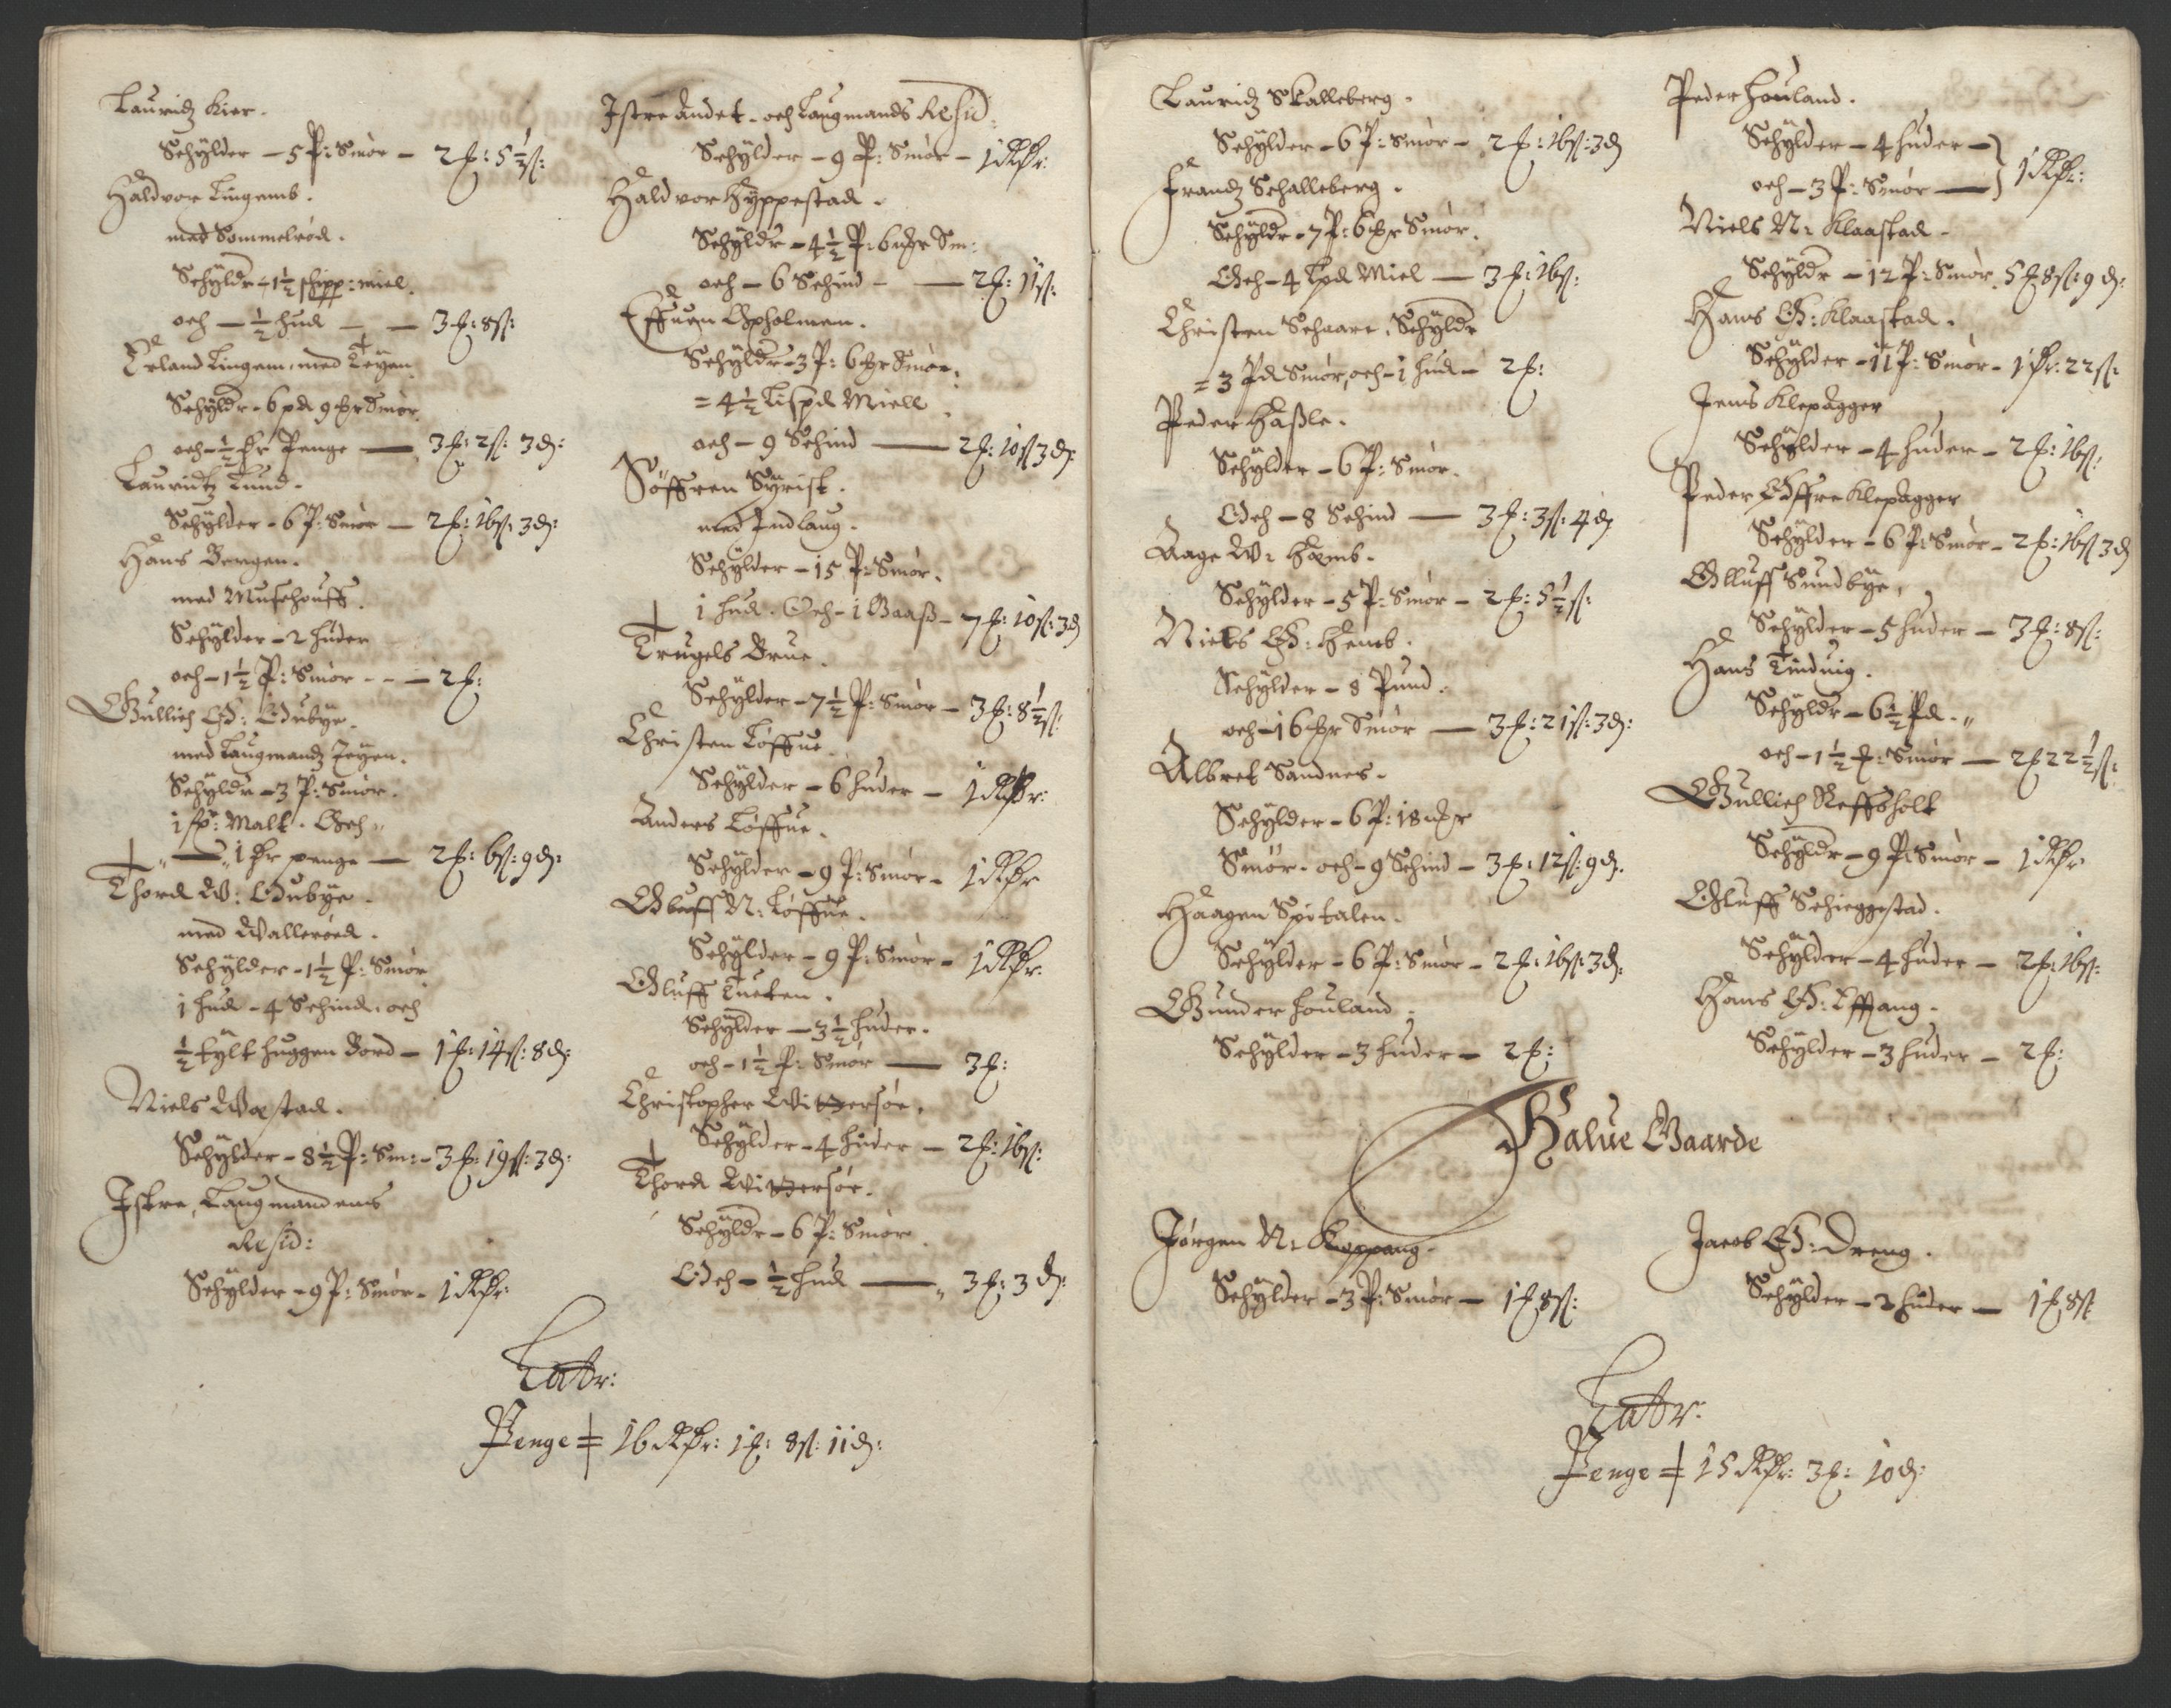 Lauridz Kier.
Schÿlder – 5 P: Smör – 2 ₰: 5½ ß:
Haldvor Lingemb.
med Sommelröd.
Schÿldr – 1½ schipp: miel.
och – ½ hud – – 3 ₰: 8 ß:
Erland Lingem, med Teÿen
Schÿldr – 6 pd 9 mkr Smör
och – ½ dr Penge — 3 ₰: 2 ß: 3 d:
Lauridtz Lund.
Schÿlder – 6 P: Smör – 2 ₰: 16 ß: 3 d:
Hans Bergan.
med Musehouff.
Schÿlder – 2 huder
och – 1½ P: Smör - - – 2 ₰:
Gullich Ö: Oubÿe.
med Laugmandz Jeÿen.
Schÿldr – 3 P: Smör.
1 sp: Malt. Och
– 1 dr penge — 2 ₰: 6 ß: 9 d:
Thord W: Oubÿe.
med Walleröed.
Schÿlder – 1½ P: Smör
1 hud – 4 Schind. och
½ tÿlt huggen Bord – 1 ₰: 14 ß: 8 d:
Niels Wastad.
Schÿlder – 8½ P: Sm: – 3 ₰: 19 ß: 3 d:
Istre, Laugmandens
Resid:
Schÿlder – 9 P: Smör – 1 Rdr:
Istre Andet. och Laugmands Resid:
Schÿlder – 9 P: Smör – 1 Rdr:
Haldvor Hÿppestad.
Schÿldr – 4½ P: 6 mkr Sm:
och – 6 Schind – — 2 ₰: 11 ß:
Effuen Apholmen.
Schÿldr – 3 P: 6 mkr Smör.
= 4½ Lispd Miell
och – 9 Schind — 2 ₰: 10 ß 3 d:
Söffren Sÿrist.
med Indlaug.
Schÿlder – 15 P: Smör.
1 hud. Och – 1 Gaass – 7 ₰: 10 ß: 3 d
Trugels Brue.
Schÿlder – 7½ P: Smör – 3 ₰: 8½ ß:
Christen Löffue.
Schÿlder – 6 huder – 1 Rdr:
Anders Löffue.
Schÿlder – 9 P: Smör – 1 Rdr
Oluff N: Löffue.
Schÿlder – 9 P: Smör – 1 Rdr:
Oluff Tueten.
Schÿlder – 3½ huder.
och – 1½ P: Smör — 3 ₰:
Christopher Wittersöe.
Schÿlder – 4 huder – 2 ₰: 16 ß:
Thord Wittersöe.
Schÿldr – 6 P: Smör
Och – ½ hud — 3 ₰: 3 d:
Latr:
Penge = 16 Rdr: 1 ₰: 8 ß: 11 d:
Lauridz Skalleberg.
Schÿlder – 6 P: Smör – 2 ₰: 16 ß: 3 d
Frandz Schalleberg.
Schÿldr – 7 P: 6 mkr Smör.
Och – 4 Lpd Miel — 3 ₰: 16 ß:
Christen Schaare. Schÿldr
= 3 Pd Smör, och – 1 hud – 2 ₰:
Peder Hassle.
Schÿlder – 6 P: Smör.
Och – 8 Schind — 3 ₰: 3 ß: 4 d
Aage W: Hæmb.
Schÿlder – 5 P: Smör – 2 ₰: 5½ ß:
Niels Ö: Hemb.
Schÿlder – 8 Pund.
och – 16 mkr Smör — 3 ₰: 21 ß: 3 d:
Albret Sandnes.
Schÿlder – 6 P: 18 mkr
Smör. och – 9 Schind – 3 ₰: 12 ß: 9 d.
Haagen Spitalen.
Schÿlder – 6 P: Smör – 2 ₰: 16 ß: 3 d:
Gunder Houland.
Schÿlder – 3 huder – 2 ₰:
Peder Houland.
Schÿlder – 4 huder –
och – 3 P: Smör — 1 Rdr:
Niels N: Klaastad.
Schÿldr – 12 P: Smör 5 ₰ 8 ß: 9 d:
Hans Ö: Klaastad.
Schÿlder – 11 P: Smör – 1 dr: 22 ß:
Jens Klepagger
Schÿlder – 4 huder – 2 ₰: 16 ß:
Peder Öffre Klepagger
Schÿlder – 6 P: Smör – 2 ₰: 16 ß 3 d
Olluff Sundbÿe.
Schÿlder – 5 huder – 3 ₰: 8 ß:
Hans Tinduig.
Schÿldr – 6½ Pd.
och – 1½ ₰: Smör — 2 ₰ 22½ ß:
Gullich Reffsholt
Schÿldr – 9 P: Smör – 1 Rdr
Oluff Schieggestad.
Schÿlder – 4 huder – 2 ₰: 16 ß:
Hans Ö: Effang.
Schÿlder – 3 huder – 2 ₰:
Halue Gaarde
Jörgen N: Koppang.
Schÿlder – 3 P: Smör – 1 ₰ 8 ß:
Jacob Ö: Dreng.
Schÿlder – 2 huder – 1 ₰ 8 ß
Latr:
Penge = 15 Rdr: 3 ₰: 10 d: